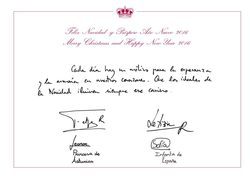 Feliz Navidad y Próspero Año Nuevo 2016
Merry Christmas and Happy New Year 2016
Cada día hay un motivo para la esperanza
y la ilusión en nuestros corazones. Que los ideales de
la Navidad iluminen siempre ese camino.
Felipe R
Letizia R
Leonor
Sofía
Princesa de
Asturias
Infanta de
España